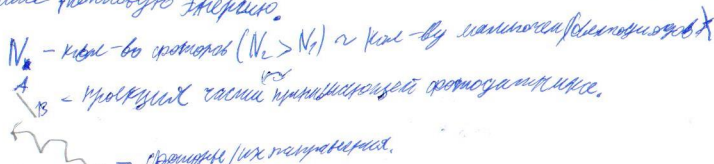 тепловую энергию.
N - кол-во фотонов (N₂ > N₁) ~ кол-ву
A
B - проекция части принимающей фотодатчика.
- фотоны / их направления.